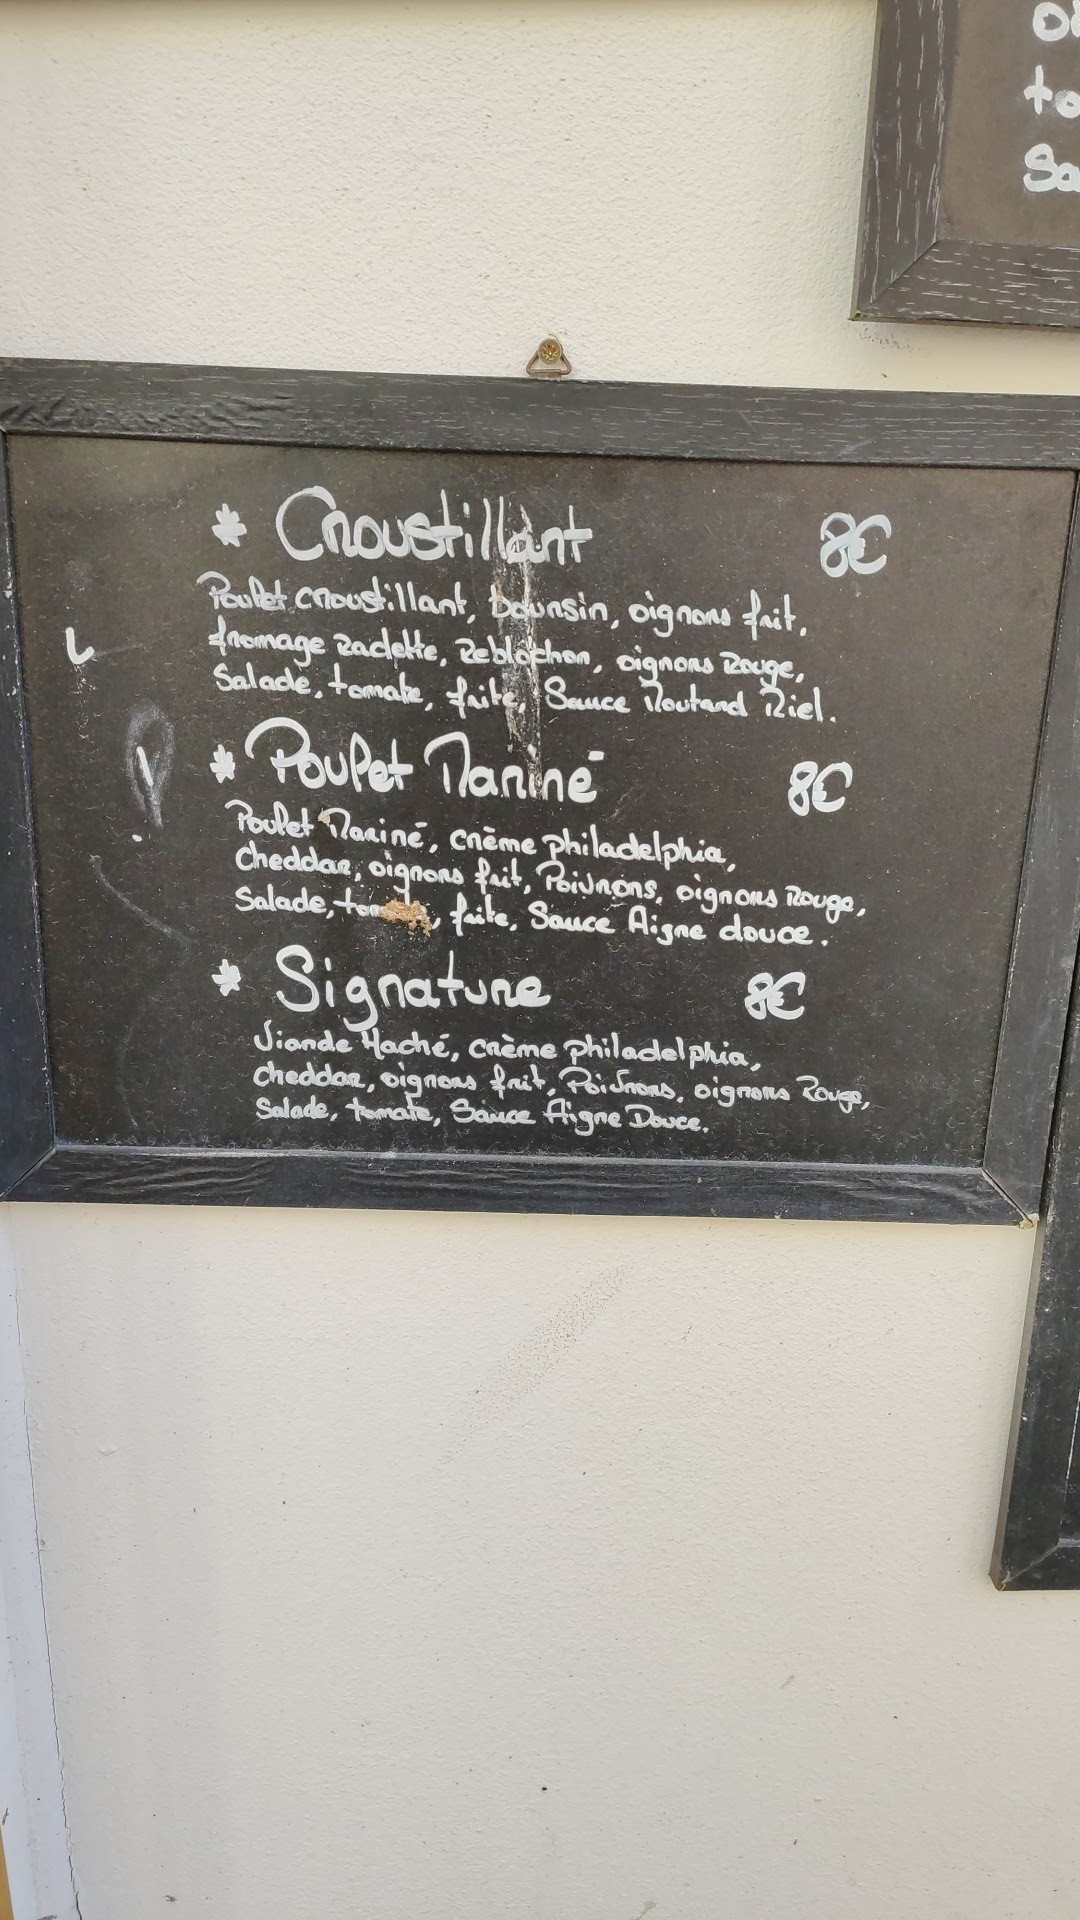 to
Sa
* Croustillant 8€
Poulet croustillant, boursin, oignons frit,
fromage Raclette, Reblochon, oignons Rouge,
Salade, tomate, frite, Sauce Moutard Miel.
* Poulet Mariné 8€
Poulet Mariné, crème philadelphia,
Cheddar, oignons frit, Poivrons, oignons Rouge,
Salade, tom, frite, Sauce Aigre douce.
* Signature 8€
Viande Haché, crème philadelphia,
Cheddar, oignons frit, Poivrons, oignons Rouge,
Salade, tomate, Sauce Aigre Douce.